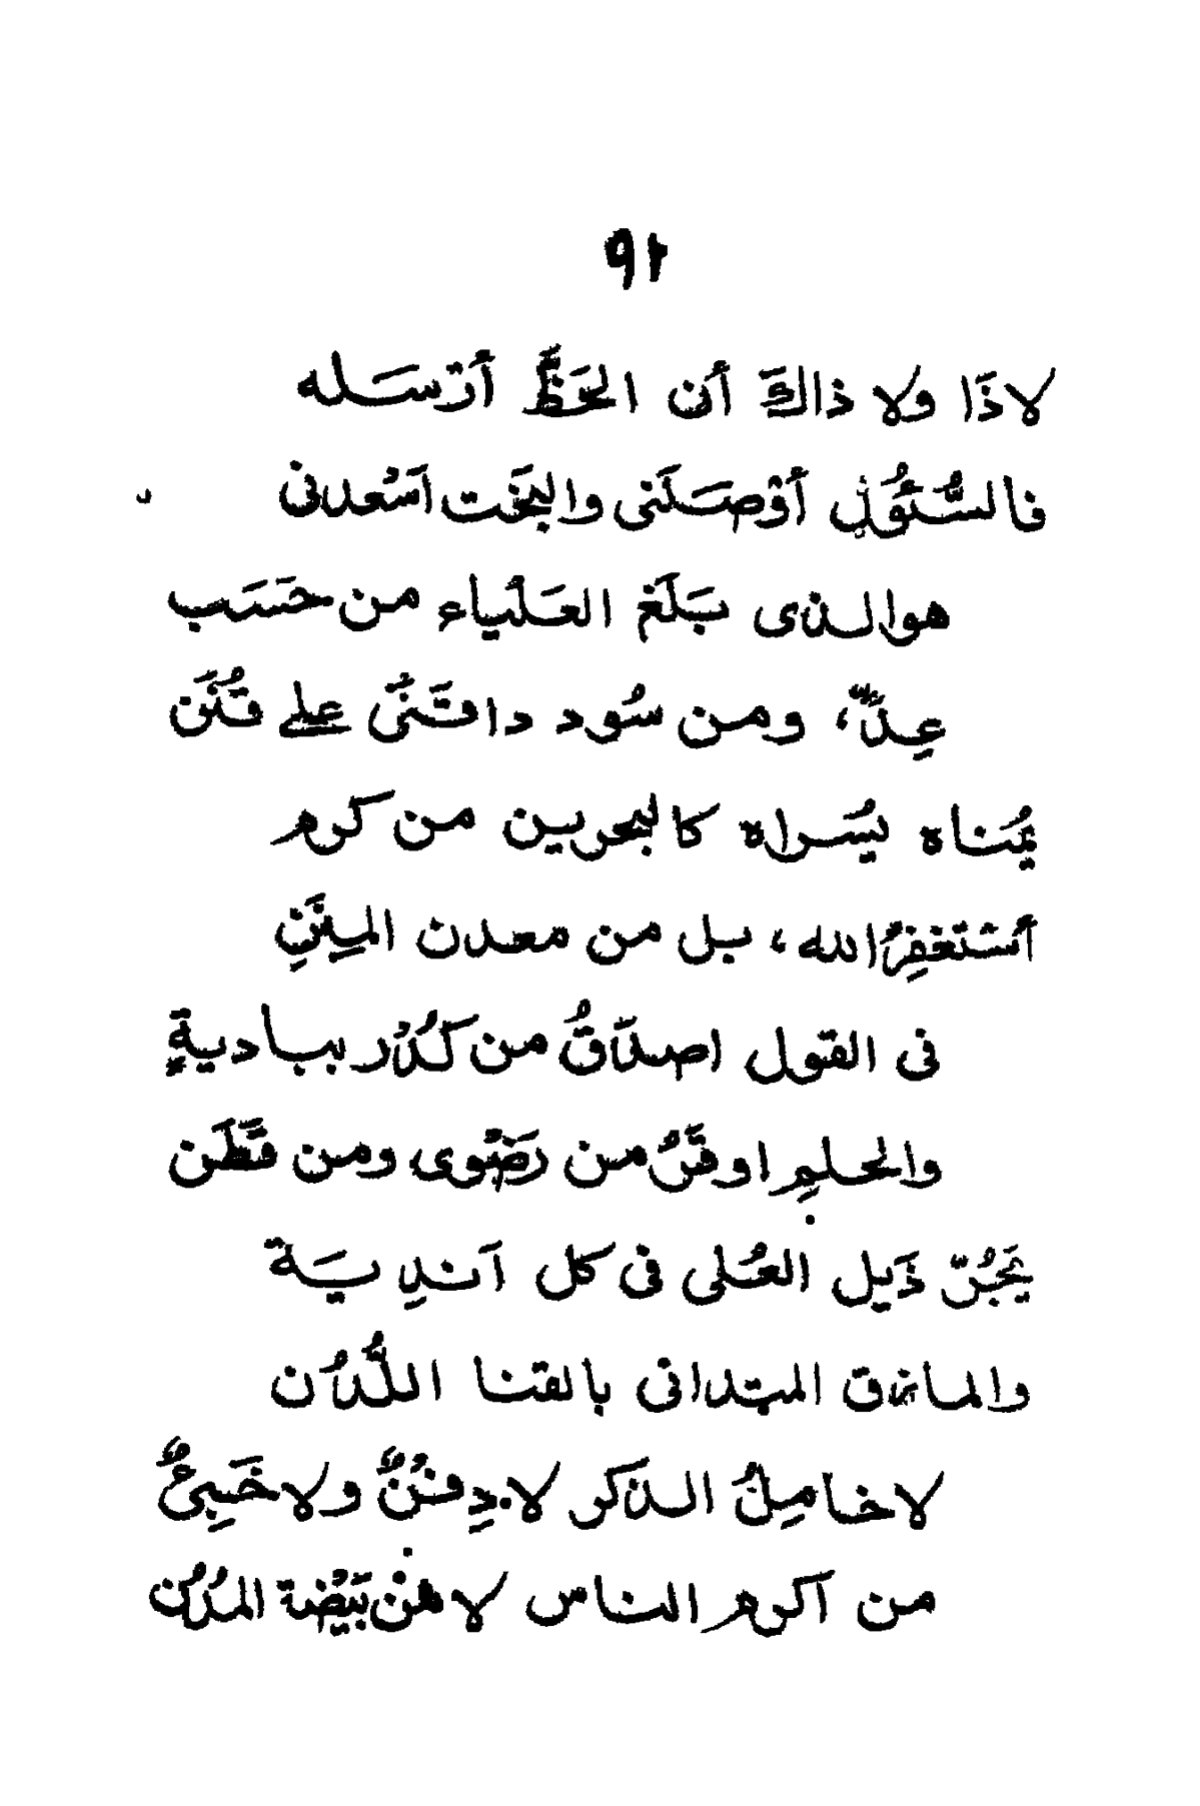 ٩٢
لاذَا ولا ذالكَ أن الحَظَّ أرْسَله
فالسُّئُوْلِ أوْصَلَنى والبَخَت اَسْعدنى
هوالذى بَلَغ العَلْياء من حَسَب
عِدٍّ، ومن سُود دا قَنًى على قُنَن
يُمْناه يُسْراه كالبحرين من كرم
أستَغفِرُ الله، بل من معدن المِنَنِ
فى القول اصدَقُ من كُدْر بباديةٍ
والحلمِ اوقَرُ من رَضْوى ومن قَطَن
يَجُرّ ذَيل العُلى فى كل اَندِيَة
والمازق المتدانى بالقنا اللُّدُن
لا خامِلُ الذكر لا دِفْنٌ ولا خَبِعٌ
من اكرم الناس لا من بَيْضة المُدُن